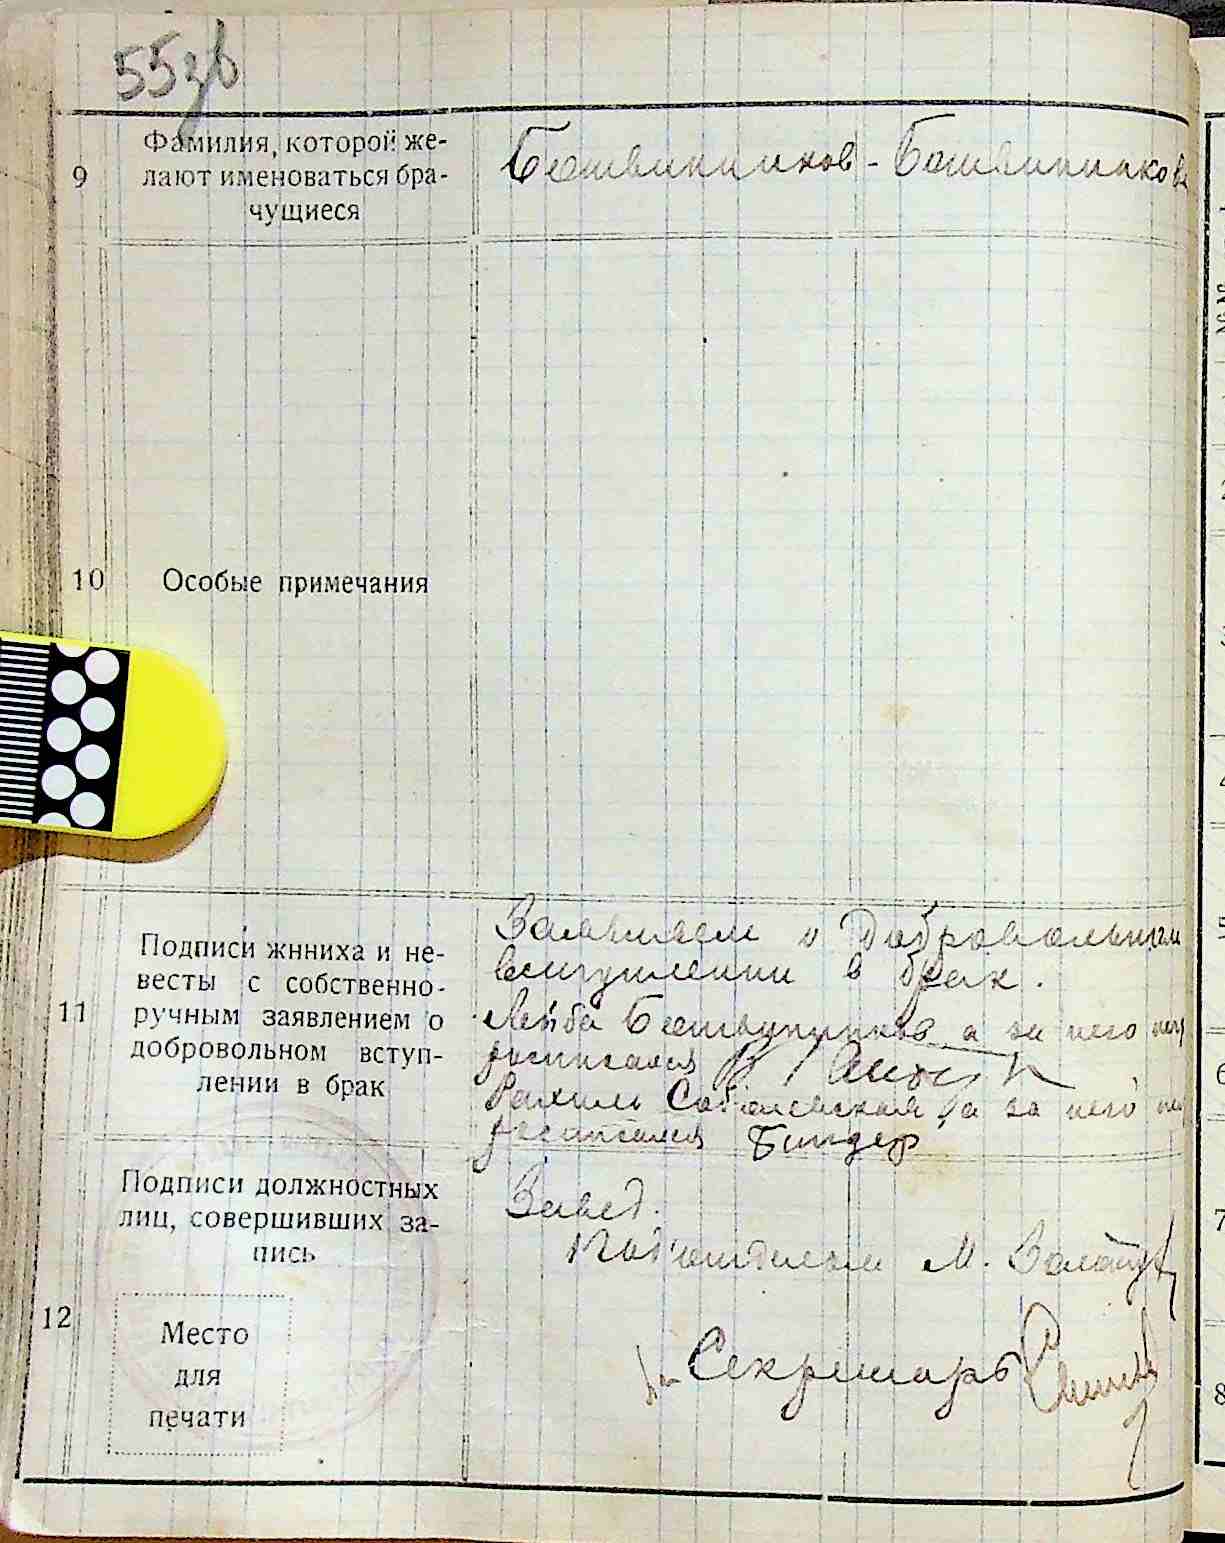 55зв
9
Фамилия, которой же-
лают именоваться бра-
чущиеся
Ботвинников - Ботвинникова
10
Особые примечания
11
Подписи жнниха и не-
весты с собственно-
ручным заявлением о
добровольном вступ-
лении в брак
Заявляем о добровольном
вступлении в брак.
Лейба Ботвинников а за него
росписался
Рахиль Соболевская, а за него
росписался Биндер
12
Подписи должностных
лиц, совершивших за-
пись
Место
для
печати
Завед.
М.
Секретарь
5
6
7
8